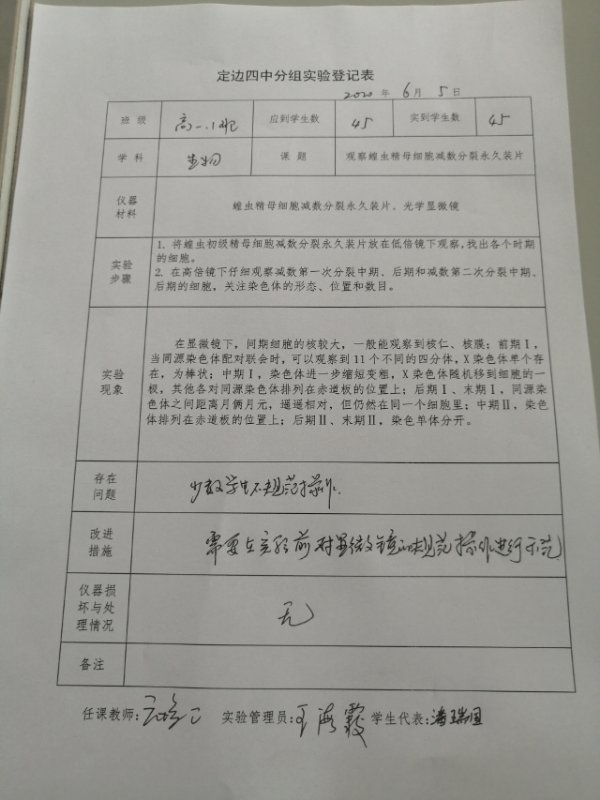 定边四中分组实验登记表
2020 年 6 月 5 日
班 级 高一.1班 应到学生数 45 实到学生数 45
学 科 生物 课 题 观察蝗虫精母细胞减数分裂永久装片
仪器
材料
蝗虫精母细胞减数分裂永久装片、光学显微镜
实验
步骤
1. 将蝗虫初级精母细胞减数分裂永久装片放在低倍镜下观察,找出各个时期
的细胞。
2. 在高倍镜下仔细观察减数第一次分裂中期、后期和减数第二次分裂中期、
后期的细胞,关注染色体的形态、位置和数目。
实验
现象
在显微镜下,间期细胞的核较大,一般能观察到核仁、核膜;前期Ⅰ,
当同源染色体配对联会时,可以观察到 11 个不同的四分体,X 染色体单个存
在,为棒状;中期Ⅰ,染色体进一步缩短变粗,X 染色体随机移到细胞的一
极,其他各对同源染色体排列在赤道板的位置上;后期Ⅰ、末期Ⅰ,同源染
色体之间距离月俩月元,遥遥相对,但仍然在同一个细胞里;中期Ⅱ,染色
体排列在赤道板的位置上;后期Ⅱ、末期Ⅱ,染色单体分开。
存在
问题
少数学生不规范操作.
改进
措施
需要在实验前对显微镜的规范操作进行示范
仪器损
坏与处
理情况
无
备注
任课教师: 实验管理员:王海霞 学生代表:潘瑞